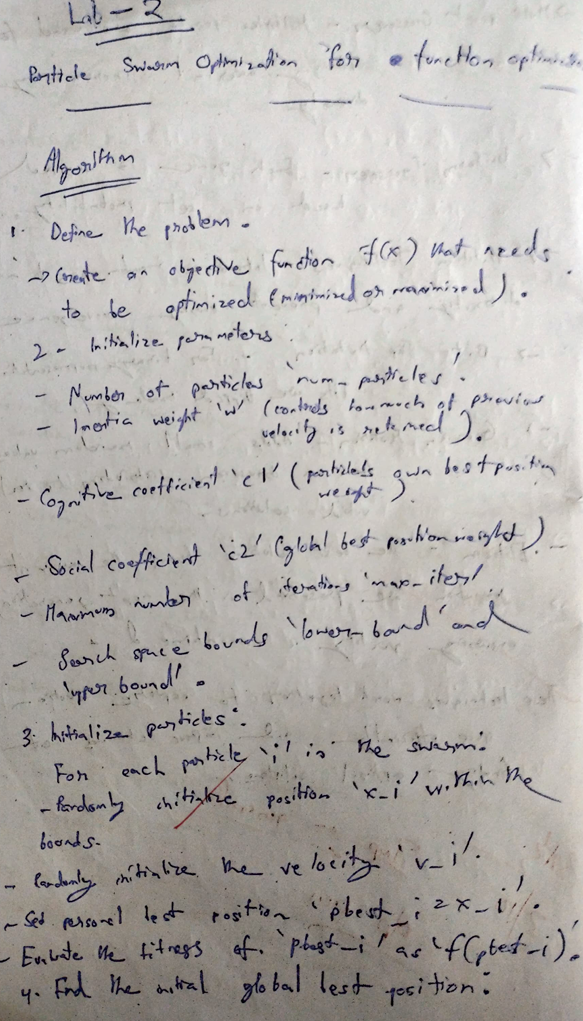 Lab - 2
Particle Swarm Optimization for function optimiz
Algorithm
1. Define the problem.
→ Create an objective function f(x) that needs
to be optimized (minimized or maximized).
2 - Initialize parameters:
- Number of particles 'num_particles'.
- Inertia weight 'w' (controls how much of previous
velocity is retained).
- Cognitive coefficient 'c1' (particle's own best position
weight)
- Social coefficient 'c2' (global best position weight) -
- Maximum number of iterations 'max_iters'
- Search space bounds 'lower_bound' and
'upper bound'.
3. Initialize particles:
For each particle 'i' in the swarm:
- Randomly initialize position 'x_i' within the
bounds.
- Randomly initialize the velocity 'v_i'.
- Set personal best position 'pbest_i = x_i'.
- Evaluate the fitness of 'pbest_i' as 'f(pbest_i)'.
4. Find the initial global best position: